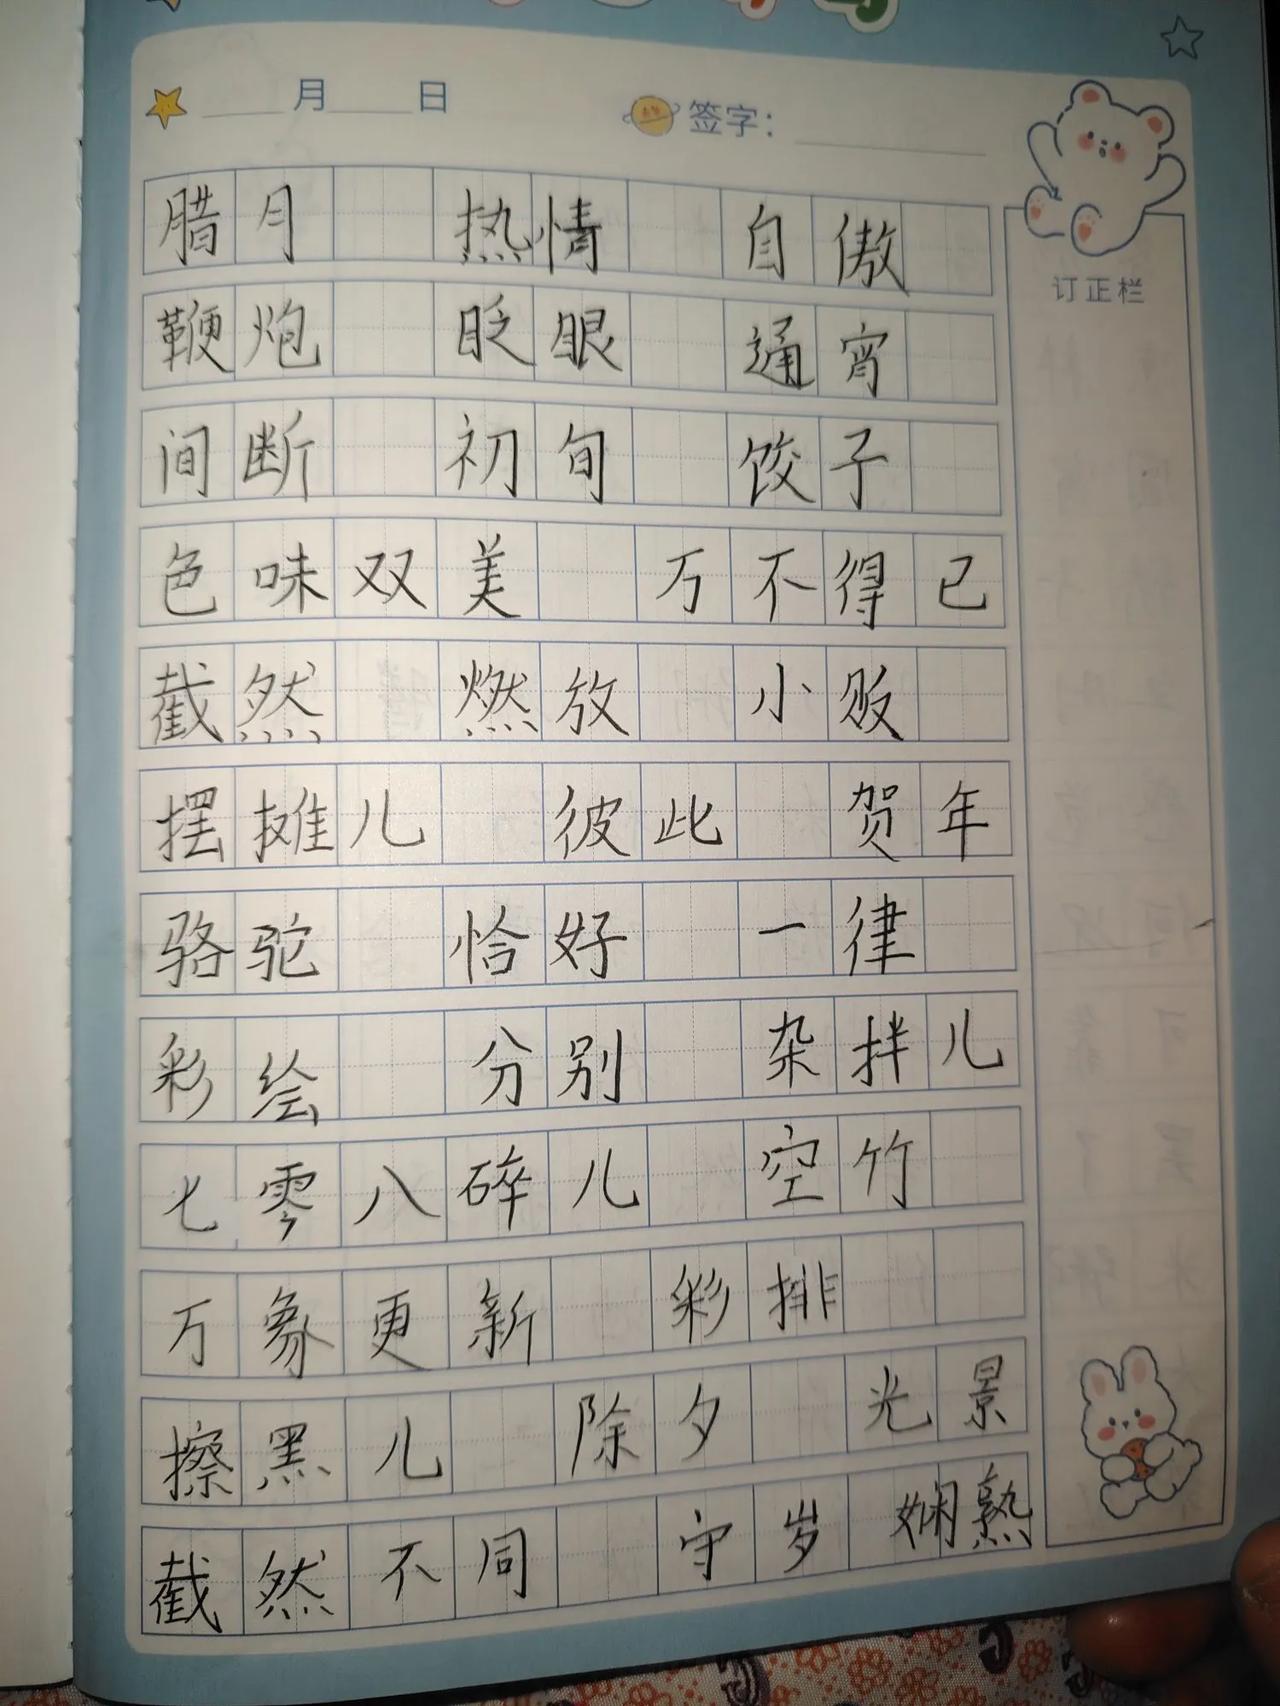 月 日 签字：
订正栏
腊月 热情 自傲
鞭炮 眨眼 通宵
间断 初旬 饺子
色味双美 万不得已
截然 燃放 小贩
摆摊儿 彼此 贺年
骆驼 恰好 一律
彩绘 分别 杂拌儿
七零八碎儿 空竹
万象更新 彩排
擦黑儿 除夕 光景
截然不同 守岁 娴熟